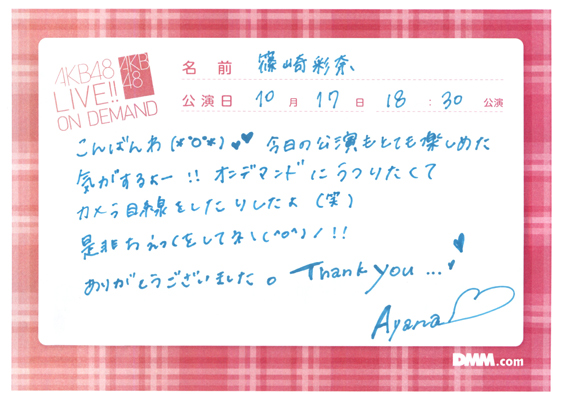 AKB48
LIVE!!
ON DEMAND
AKB
48
名 前 篠崎彩奈
公演日 10 月 17 日 18 : 30 公演
こんばんわ(*°o°*)♥♥ 今日の公演もとても楽しめた
気がするよー!! オンデマンドにうつりたくて
カメラ目線をしたりしたよ(笑)
是非 をしてネ\(^o^)/!!
ありがとうございました。 Thank you ...♥
Ayana♡
DMM.com